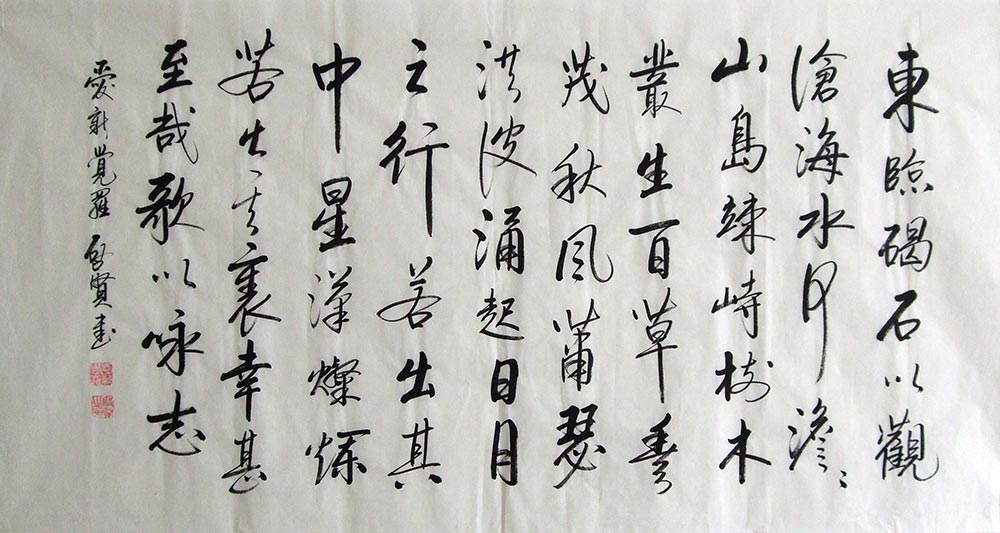 東臨碣石以觀
滄海水何澹〻
山島竦峙樹木
叢生百草豐
茂秋風蕭瑟
洪波涌起日月
之行若出其
中星漢燦爛
若出其裏幸甚
至哉歌以咏志
愛新覺羅 啟賢書